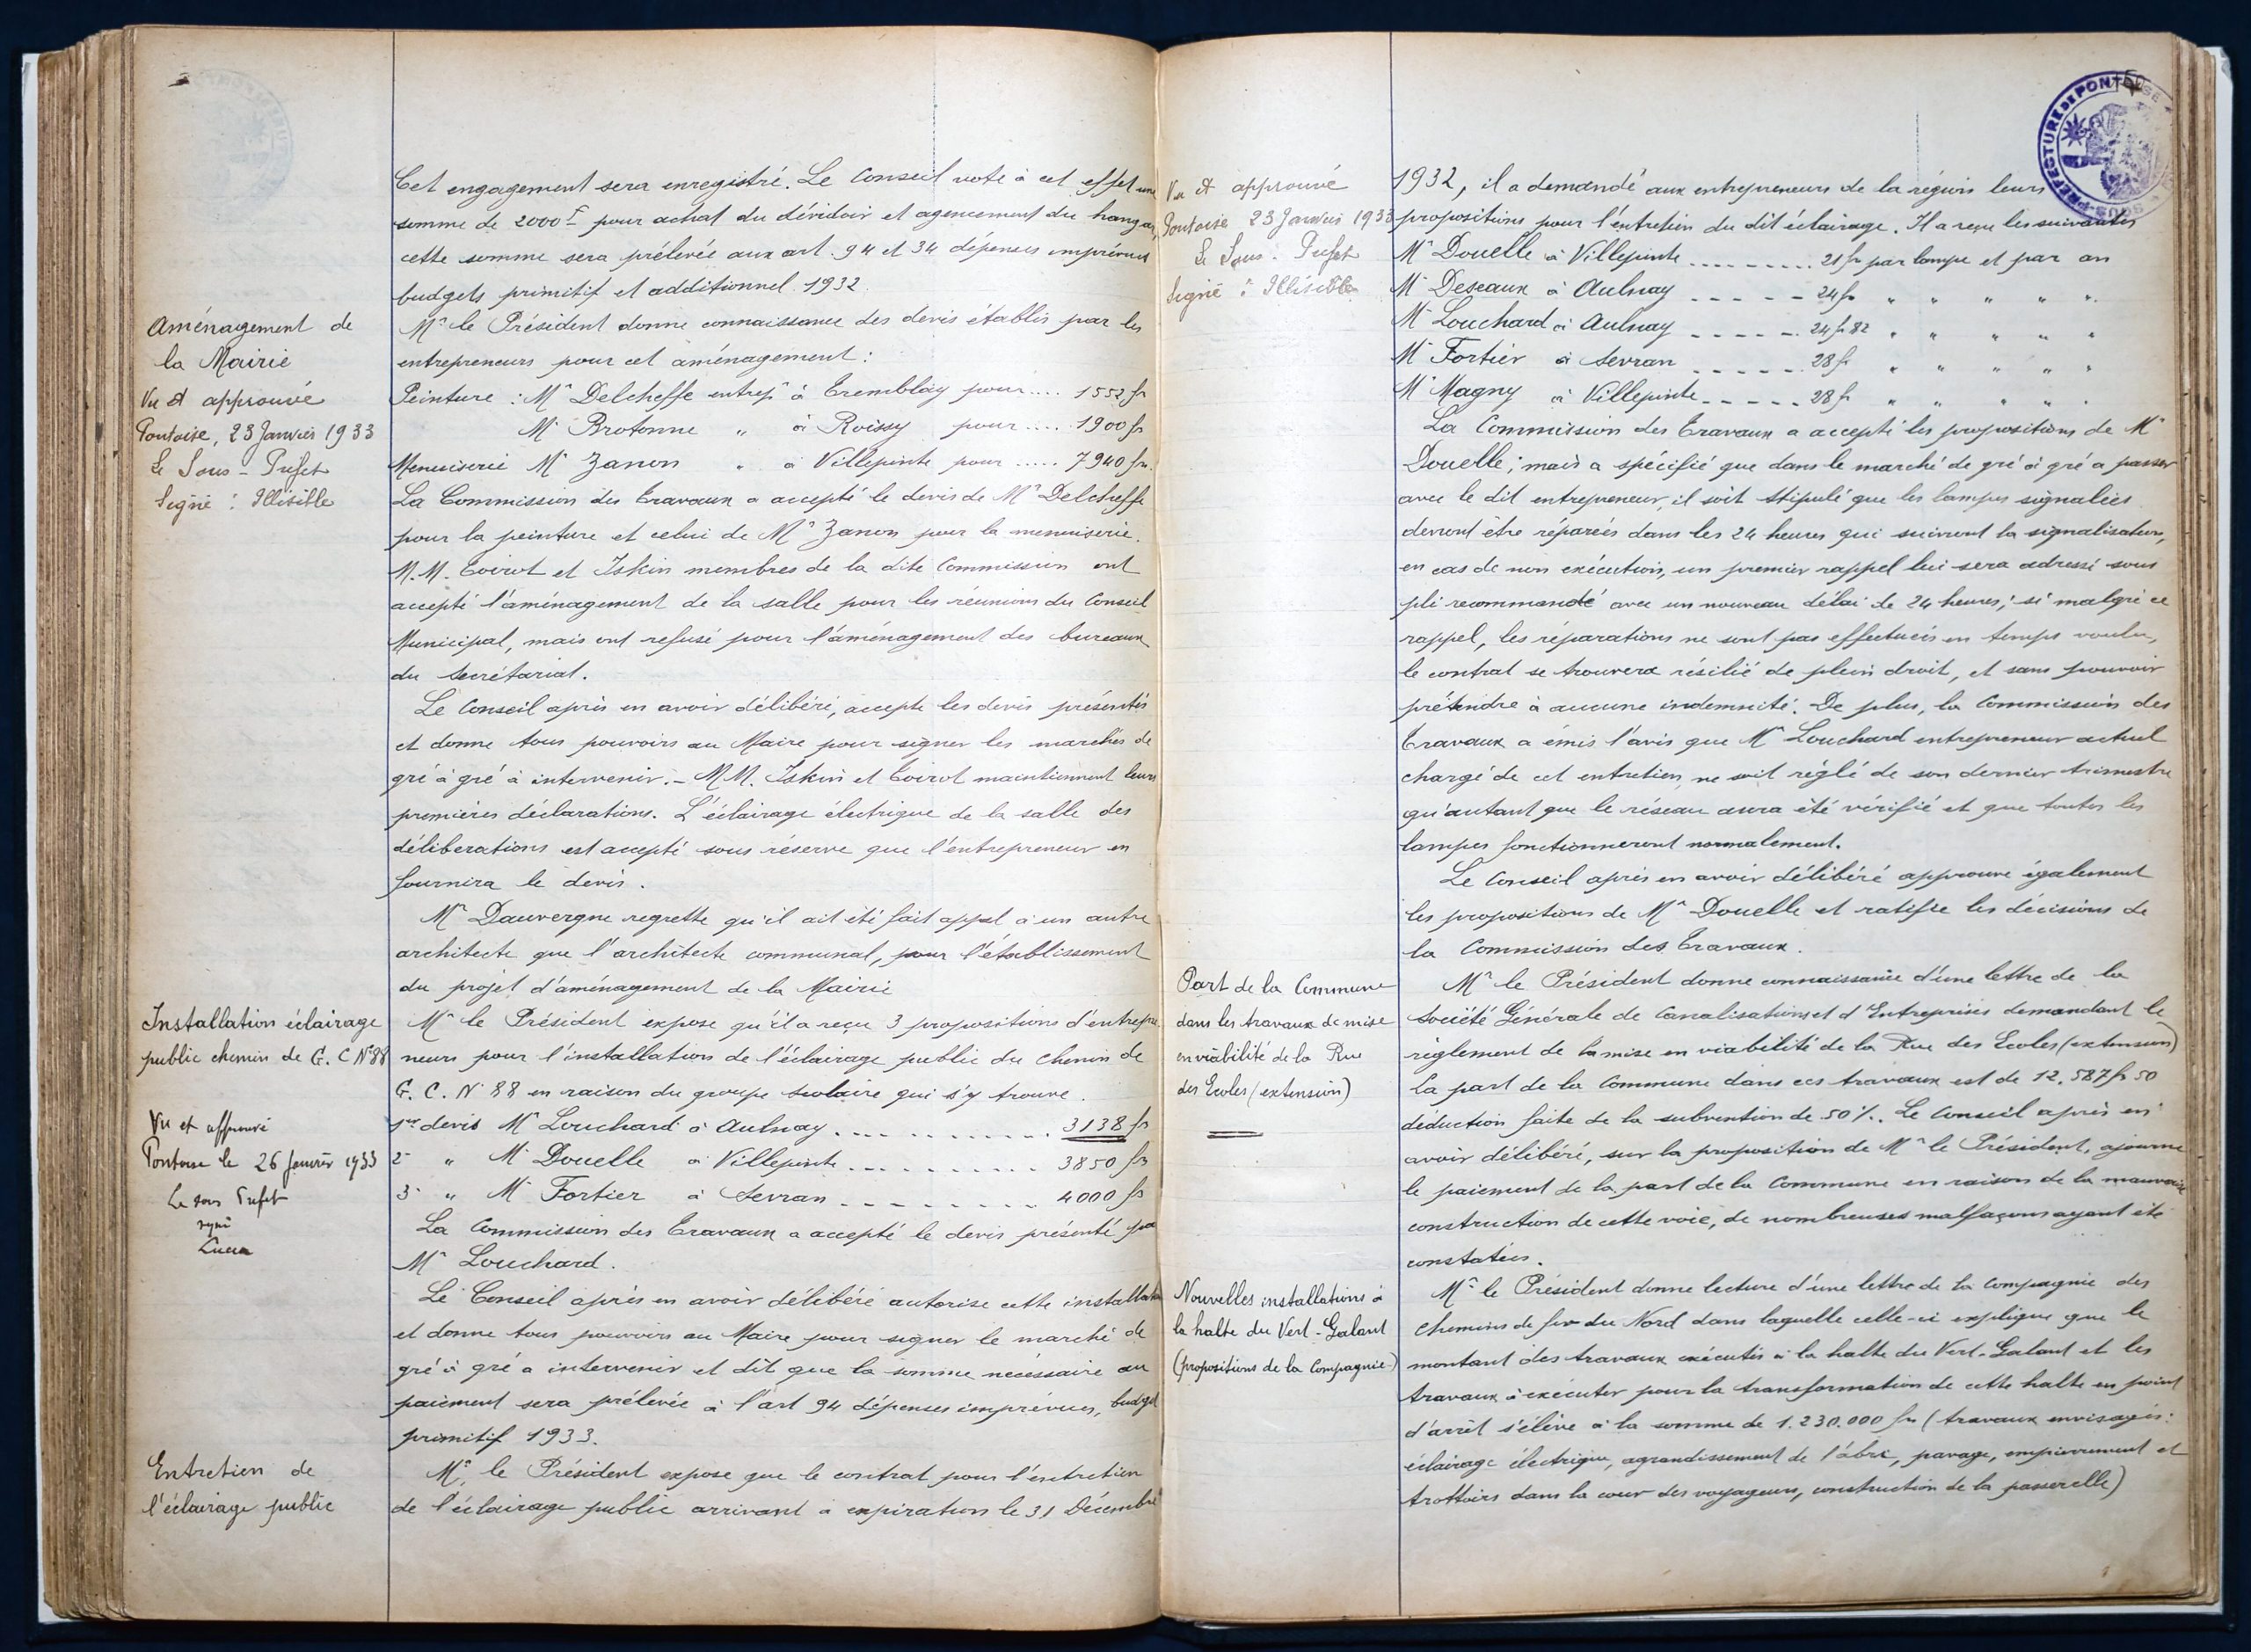 Cet engagement sera enregistré. Le Conseil vote à cet effet une
somme de 2000 F pour achat du dévidoir et agencement du hangar,
cette somme sera prélevée aux art. 94 et 34 dépenses imprévues
budgets primitif et additionnel 1932.
Aménagement de
la Mairie
Vu et approuvé
Pontoise, 23 Janvier 1933
Le Sous-Préfet
Signé : Illisible
Mr le Président donne connaissance des devis établis par les
entrepreneurs pour cet aménagement :
Peinture : Mr Delcheffe entrepr à Tremblay pour .... 1552 fr
Mr Brotonne " à Roissy pour .... 1900 fr
Menuiserie Mr Zanon " à Villepinte pour ..... 7940 frs.
La Commission des Travaux a accepté le devis de Mr Delcheffe
pour la peinture et celui de Mr Zanon pour la menuiserie.
M.M. Toirot et Iskin membres de la dite Commission ont
accepté l'aménagement de la salle pour les réunions du Conseil
Municipal, mais ont refusé pour l'aménagement des bureaux
du secrétariat.
Le Conseil après en avoir délibéré, accepte les devis présentés
et donne tous pouvoirs au Maire pour signer les marchés de
gré à gré à intervenir. - M.M. Iskin et Toirot maintiennent leurs
premières déclarations. L'éclairage électrique de la salle des
déliberations est accepté sous réserve que l'entrepreneur en
fournira le devis.
Mr Dauvergne regrette qu'il ait été fait appel à un autre
architecte que l'architecte communal, pour l'établissement
du projet d'aménagement de la Mairie
Installation éclairage
public chemin de G. C N° 88
Vu et approuvé
Pontoise le 26 Janvier 1933
Le Sous Préfet
signé
Mr le Président expose qu'il a reçu 3 propositions d'entrepre
neurs pour l'installation de l'éclairage public du chemin de
G. C. N° 88 en raison du groupe scolaire qui s'y trouve.
1er devis Mr Louchard à Aulnay . . . . . . . . . 3138 fr
2e " Mr Douelle à Villepinte . . . . . . . . . 3850 frs
3e " Mr Fortier à Sevran . . . . . . . . . 4000 frs
La Commission des Travaux a accepté le devis présenté par
Mr Louchard.
Le Conseil après en avoir délibéré autorise cette installation
et donne tous pouvoirs au Maire pour signer le marché de
gré à gré a intervenir et dit que la somme nécessaire au
paiement sera prélevée à l'art 94 dépenses imprévues, budget
primitif 1933.
Entretien de
l'éclairage public
Mr le Président expose que le contrat pour l'entretien
de l'éclairage public arrivant à expiration le 31 Décembre
SOUS-PRÉFECTURE DE PONTOISE
Vu et approuvé
Pontoise 23 Janvier 1933
Le Sous-Préfet
Signé : Illisible
1932, il a demandé aux entrepreneurs de la région leurs
propositions pour l'entretien du dit éclairage. Il a reçu les suivantes
Mr Douelle à Villepinte . . . . . . . . . 21 fr par lampe et par an
Mr Deseaux à Aulnay . . . . . 24 fr " " " " "
Mr Louchard à Aulnay . . . . . 24 fr 82 " " " " "
Mr Fortier à Sevran . . . . . 28 fr " " " " "
Mr Magny à Villepinte . . . . . 28 fr " " " " "
La Commission des Travaux a accepté les propositions de Mr
Douelle ; mais a spécifié que dans le marché de gré à gré a passer
avec le dit entrepreneur, il soit stipulé que les lampes signalées
devront être réparées dans les 24 heures qui suivront la signalisation,
en cas de non exécution, un premier rappel lui sera adressé sous
pli recommandé avec un nouveau délai de 24 heures ; si malgré ce
rappel, les réparations ne sont pas effectuées en temps voulu,
le contrat se trouvera résilié de plein droit, et sans pouvoir
prétendre à aucune indemnité. De plus, la Commission des
Travaux a émis l'avis que Mr Louchard entrepreneur actuel
chargé de cet entretien, ne soit réglé de son dernier trimestre
qu'autant que le réseau aura été vérifié et que toutes les
lampes fonctionneront normalement.
Le Conseil après en avoir délibéré approuve également
les propositions de Mr Douelle et ratifie les décisions de
la Commission des Travaux.
Part de la Commune
dans les travaux de mise
en viabilité de la Rue
des Ecoles (extension)
Mr le Président donne connaissance d'une lettre de la
Société Générale de Canalisations et d'Entreprises demandant le
règlement de la mise en viabilité de la Rue des Ecoles (extension)
La part de la Commune dans ces travaux est de 12.587 fr 50
déduction faite de la subvention de 50 %. Le Conseil après en
avoir délibéré, sur la proposition de Mr le Président, ajourne
le paiement de la part de la Commune en raison de la mauvaise
construction de cette voie, de nombreuses malfaçons ayant été
constatées.
Nouvelles installations à
la halte du Vert-Galant
(propositions de la Compagnie)
Mr le Président donne lecture d'une lettre de la Compagnie des
Chemins de fer du Nord dans laquelle celle-ci explique que le
montant des travaux exécutés à la halte du Vert-Galant et les
travaux à exécuter pour la transformation de cette halte en point
d'arrêt s'élève à la somme de 1.230.000 frs (travaux envisagés :
éclairage électrique, agrandissement de l'abri, pavage, empierrement et
trottoirs dans la cour des voyageurs, construction de la passerelle)